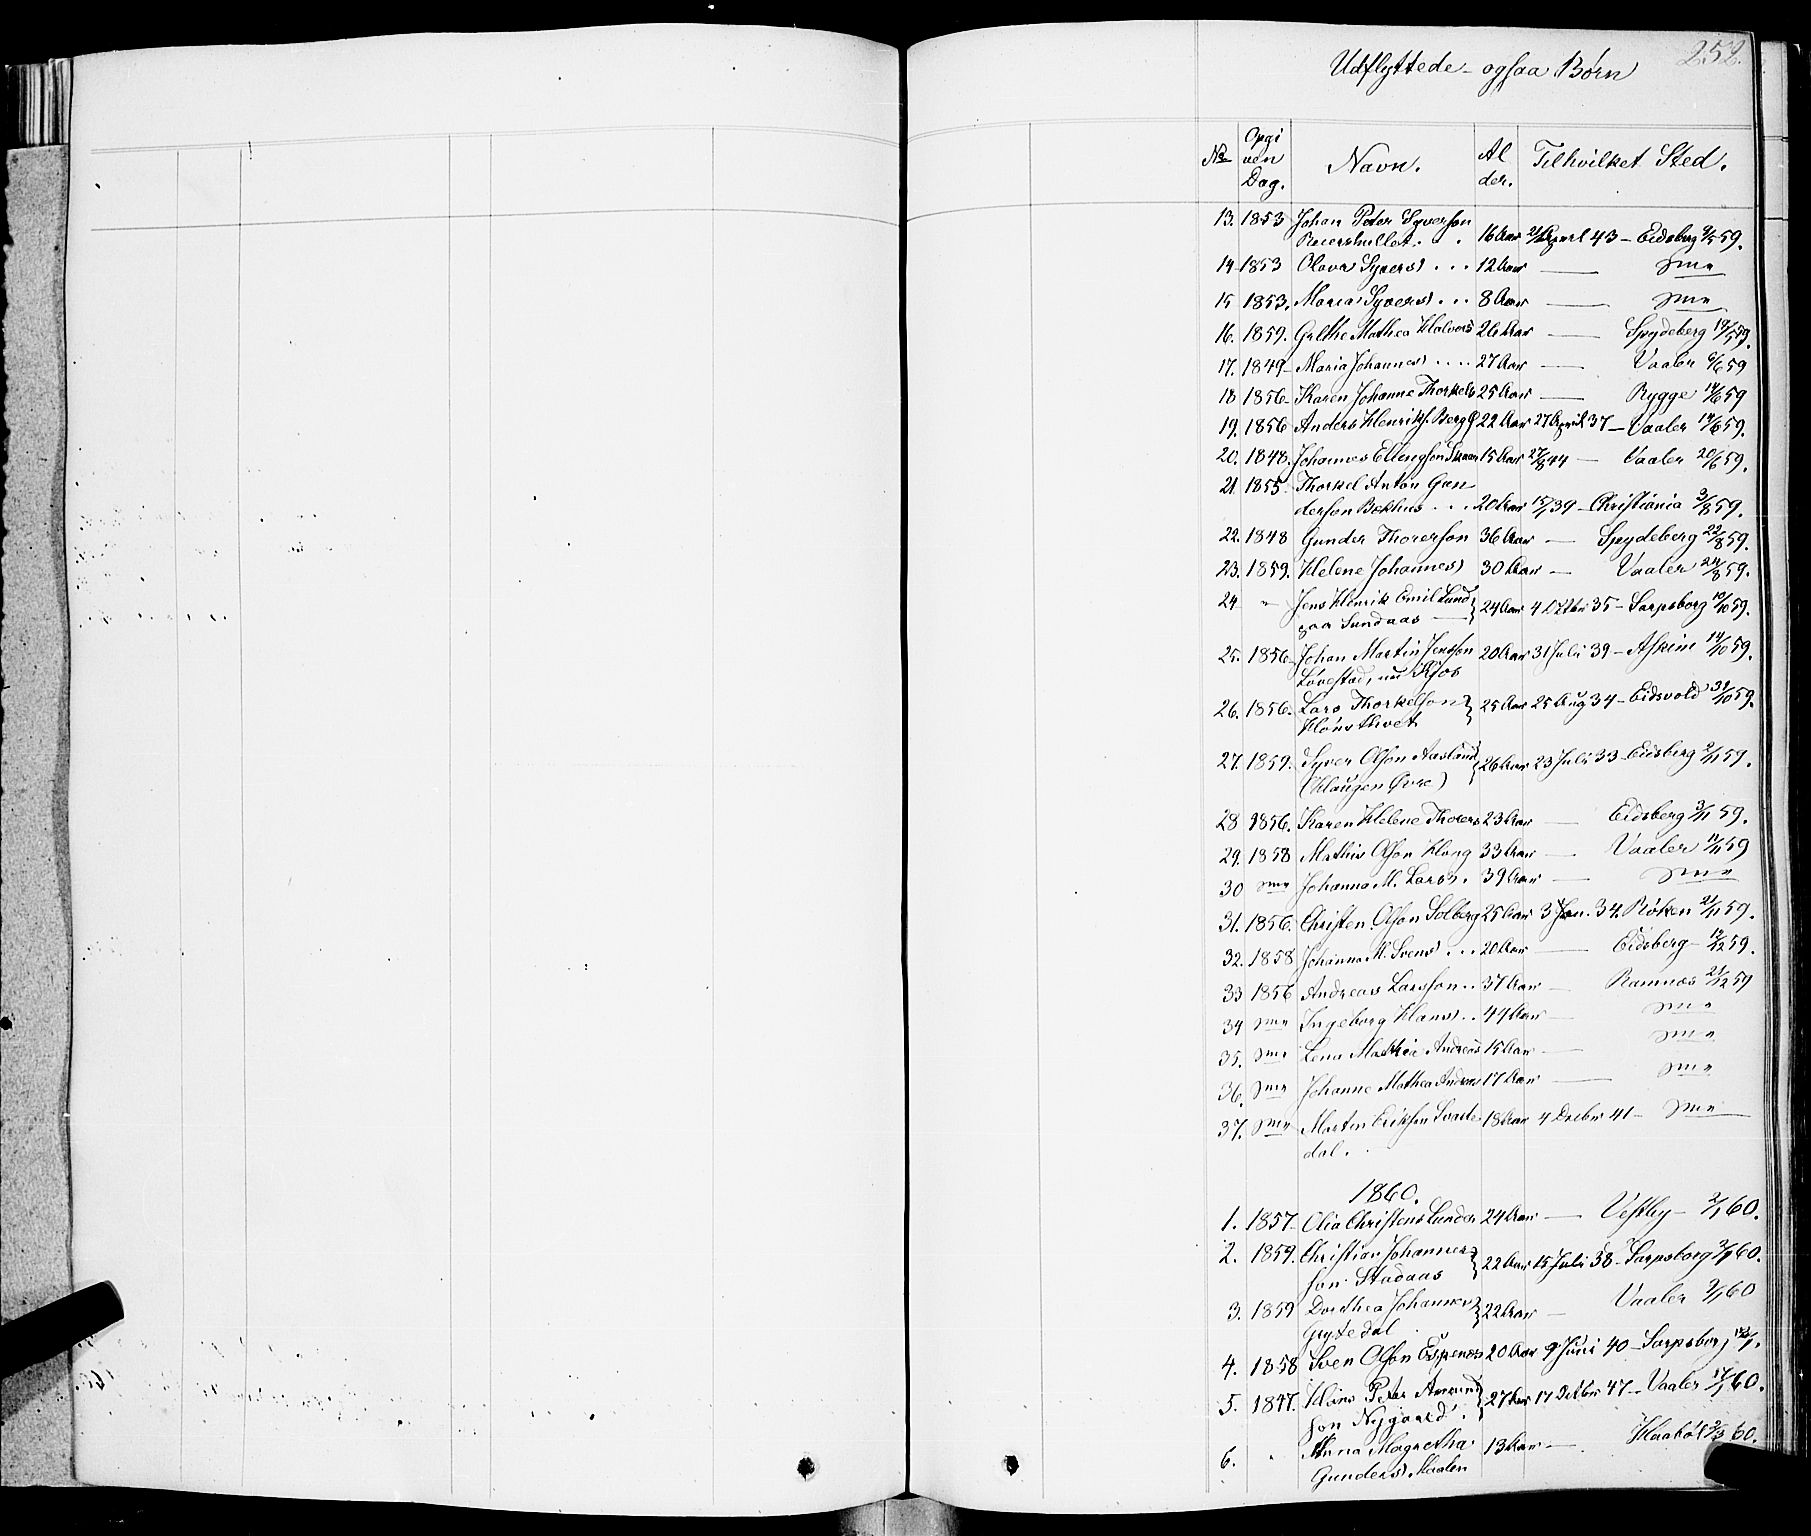 252.
Udflyttede - ogsaa Børn
No Opgi ven Dag. Navn. Al der. Tilhvilket Sted.
13. 1853 Johan Peter Syverson
16 Aar 2/April 43 - Eidsberg 9/5 59.
14 1853 Olava Syvers) . . . 12 Aar — Sme
15 1853. Maria Syvers) . . . 8 Aar — Sme
16. 1859. Grethe Mathea Halvors 26 Aar — Spydeberg 19/5 59.
17. 1849 - Maria Johannes) . . . . 27 Aar — Vaaler 6/6 59
18 1856 - Karen Johanne Thorkels 25 Aar — Rygge 14/6 59
19. 1856 Anders Henriks. Berg 22 Aar 27 April 37 - Vaaler 14/6 59.
20. 1848. Johannes Ellingson Skaar 15 Aar 27/8 44 — Vaaler 20/6 59.
21 1855 - Thorkel Anton Gun
derson Bakhus . . . 20 Aar 15/1 39 - Christiania 3/8 59.
22. 1848 Gunder Thorerson 36 Aar — Spydeberg 22/8 59.
23. 1859. Helene Johannes) 30 Aar — Vaaler 24/8 59.
24 " Jens Henrik Emil Lund
paa Sundaas — 24 Aar 4 Octbr 35 - Sarpsborg 10/10 59.
25. 1856 - Johan Martin Jensson 20 Aar 31 Juli 39 - Askim 14/10 59.
Løvestad, nu Kjos
26. 1856. Lars Thorkelson 25 Aar 25 Aug 34 - Eidsvold 31/10 59.
Hønsthvet
27. 1859. Syver Olson Aasland 26 Aar 23 Juli 33 - Eidsberg 2/11 59.
(Haugen Øvre)
28 1856. Karen Helene Thorers 23 Aar — Eidsberg 3/11 59.
29. 1858 Mathis Olson Haug 33 Aar — Vaaler 11/11 59
30 Sme Johanna M. Lars). 39 Aar — Sme
31. 1856. Christen Olson Solberg 25 Aar 3 Jan. 34. Røken 21/11 59.
32. 1858 Johanna M. Svens) . . . 20 Aar — Eidsberg - 12/12 59.
33 1856 Andreas Larsson . . 37 Aar — Ramnæs 21/12 59
34 Sme Ingeborg Hans) . . 44 Aar — Sme
35. Sme Lena Mathea Andreas 15 Aar — Sme
36. Sme Johanne Mathea Andreas 17 Aar — Sme
37. Sme Martin Erikson Svarte 18 Aar 4 Decbr 41 - Sme
dal.
1860.
1. 1857 - Olia Christens Sunder 24 Aar — Vestby - 2/1 60.
2. 1859. Christian Johannes
son Stadaas 22 Aar 15 Juli 38 - Sarpsborg 3/1 60.
3. 1859 Dorthea Johannes) 22 Aar — Vaaler 9/1 60
Grytedal
4. 1858 Sven Olson Espenæs 20 Aar 9 Juni 40 - Sarpsborg
5. 1847. Hans Peter Amund 27 Aar 17 Octbr 47 - Vaaler 17/1 60.
son Nygaard .
6. " Anna Magretha 13 Aar — Haabøl 2/3 60.
Gunders)